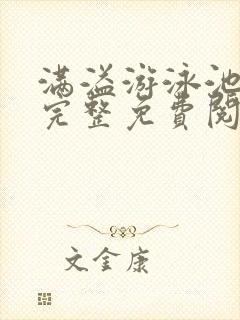 满溢游泳池
完整免费阅
文金康